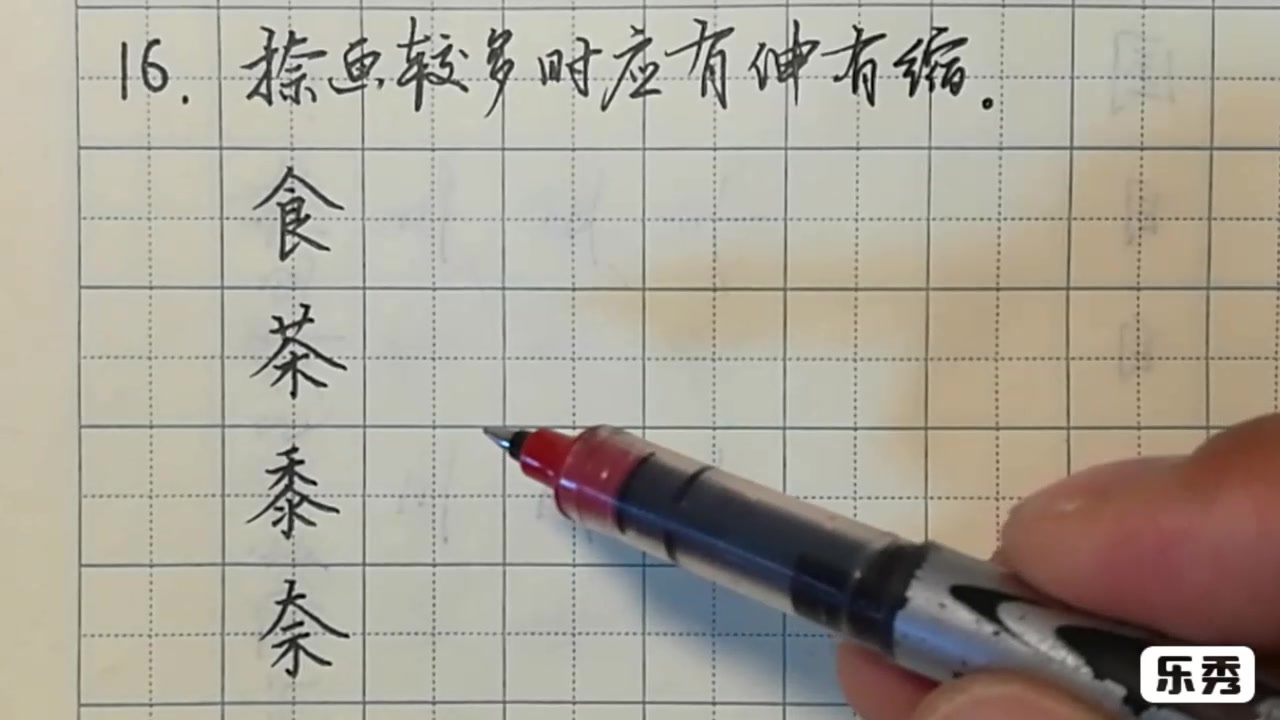 16. 捺画较多时应有伸有缩。
食
茶
黍
奈
乐秀